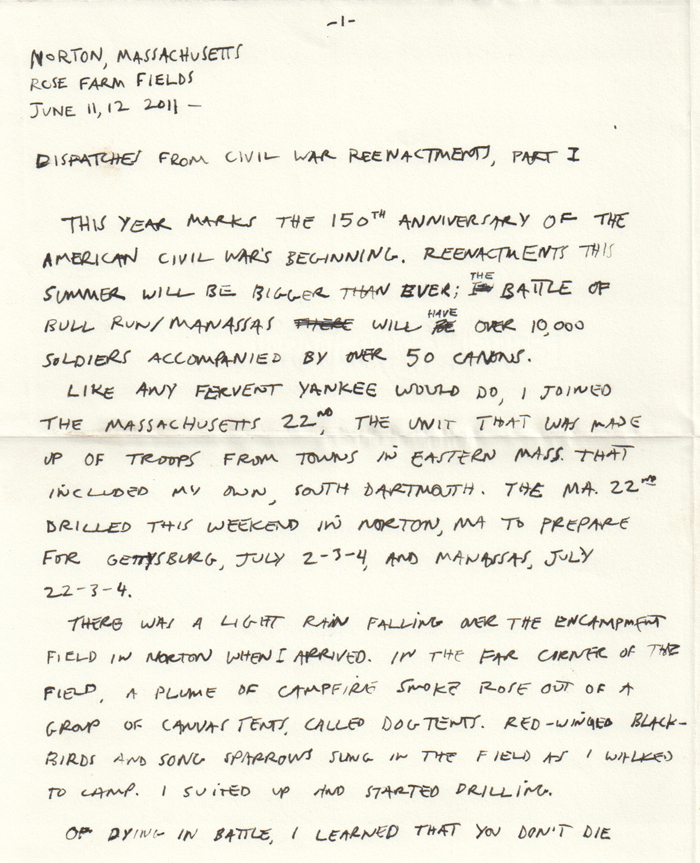 -1-
NORTON, MASSACHUSETTS
ROSE FARM FIELDS
JUNE 11, 12 2011 —
DISPATCHES FROM CIVIL WAR REENACTMENTS, PART I
THIS YEAR MARKS THE 150TH ANNIVERSARY OF THE
AMERICAN CIVIL WAR'S BEGINNING. REENACTMENTS THIS
SUMMER WILL BE BIGGER THAN EVER; THE BATTLE OF
BULL RUN/MANASSAS THERE WILL BE HAVE OVER 10,000
SOLDIERS ACCOMPANIED BY OVER 50 CANONS.
LIKE ANY FERVENT YANKEE WOULD DO, I JOINED
THE MASSACHUSETTS 22ND, THE UNIT THAT WAS MADE
UP OF TROOPS FROM TOWNS IN EASTERN MASS. THAT
INCLUDED MY OWN, SOUTH DARTMOUTH. THE MA. 22ND
DRILLED THIS WEEKEND IN NORTON, MA TO PREPARE
FOR GETTYSBURG, JULY 2-3-4, AND MANASSAS, JULY
22-3-4.
THERE WAS A LIGHT RAIN FALLING OVER THE ENCAMPMENT
FIELD IN NORTON WHEN I ARRIVED. IN THE FAR CORNER OF THE
FIELD, A PLUME OF CAMPFIRE SMOKE ROSE OUT OF A
GROUP OF CANVAS TENTS, CALLED DOGTENTS. RED-WINGED BLACK-
BIRDS AND SONG SPARROWS SUNG IN THE FIELD AS I WALKED
TO CAMP. I SUITED UP AND STARTED DRILLING.
OF DYING IN BATTLE, I LEARNED THAT YOU DON'T DIE